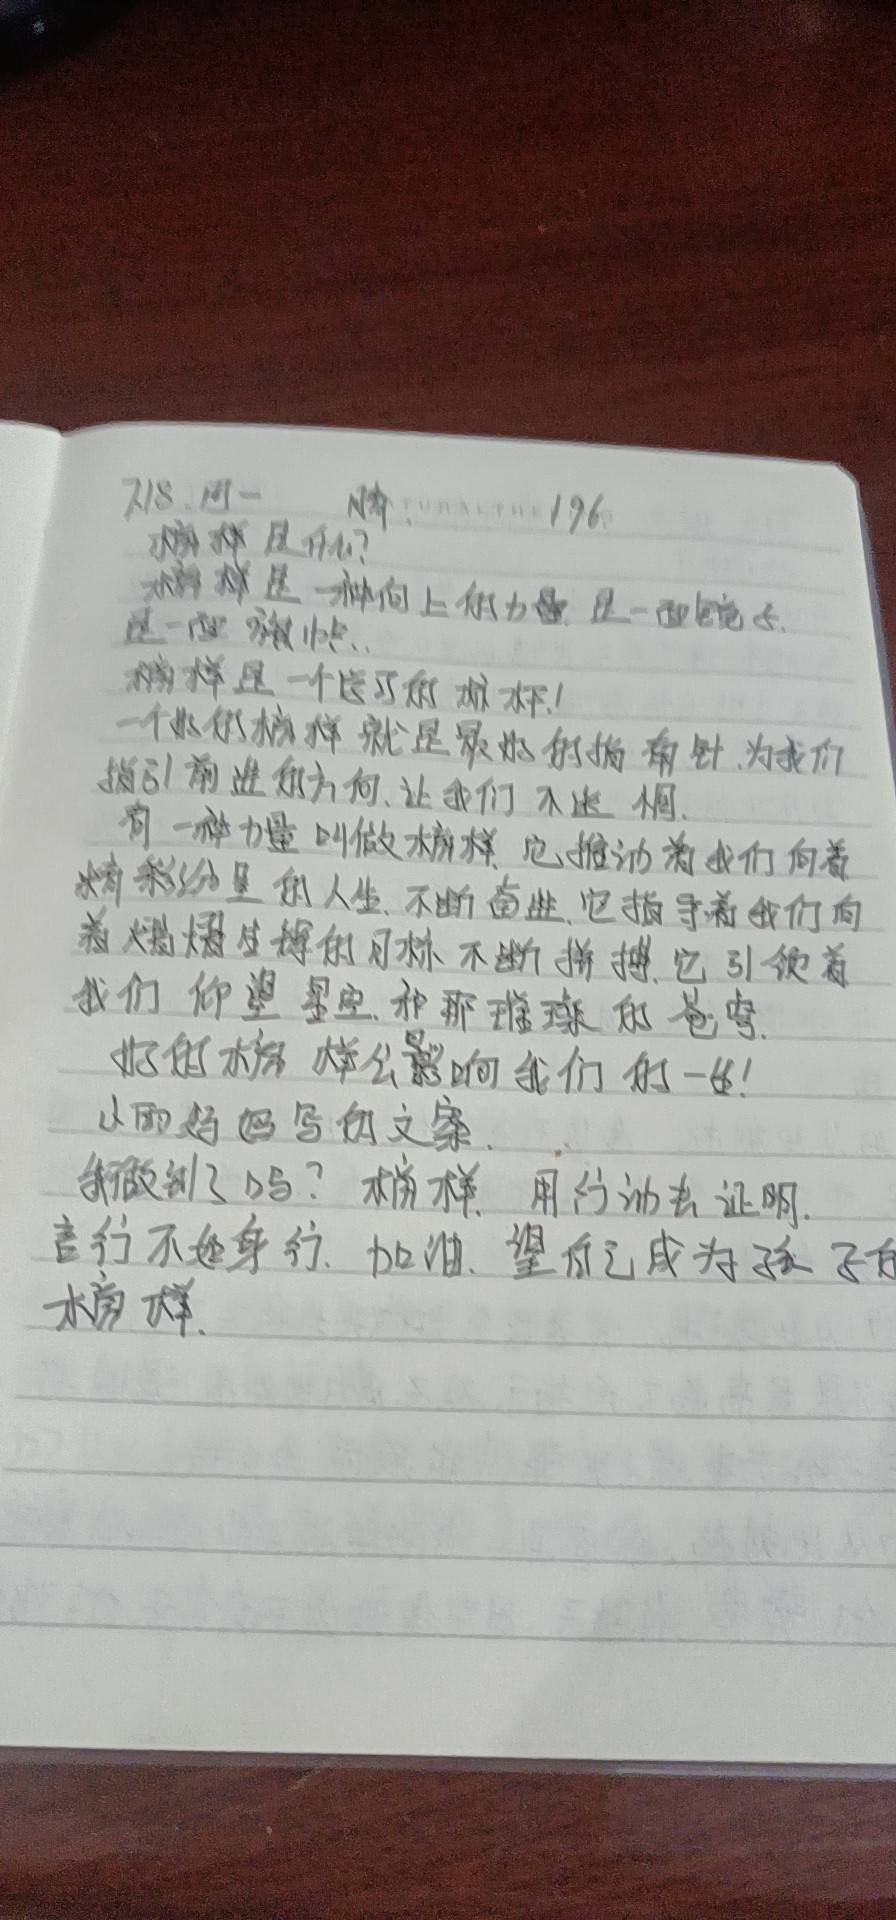 7.18.周一 晴. 196
榜样是什么?
榜样是一种向上的力量.是一面镜子.
是一面旗帜..
榜样是一个学习的标杆!
一个好的榜样就是最好的指南针.为我们
指引前进的方向.让我们不迷惘.
有一种力量叫做榜样.它推动着我们向着
精彩纷呈的人生.不断奋进.它指导着我们向
着熠熠生辉的目标不断拼搏.它引领着
我们仰望星空.和那璀璨的苍穹.
好的榜样会影响我们的一生!
以前妈妈写的文案.
我做到了吗?榜样.用行动去证明.
言行不如身行.加油.望自己成为孩子的
榜样.